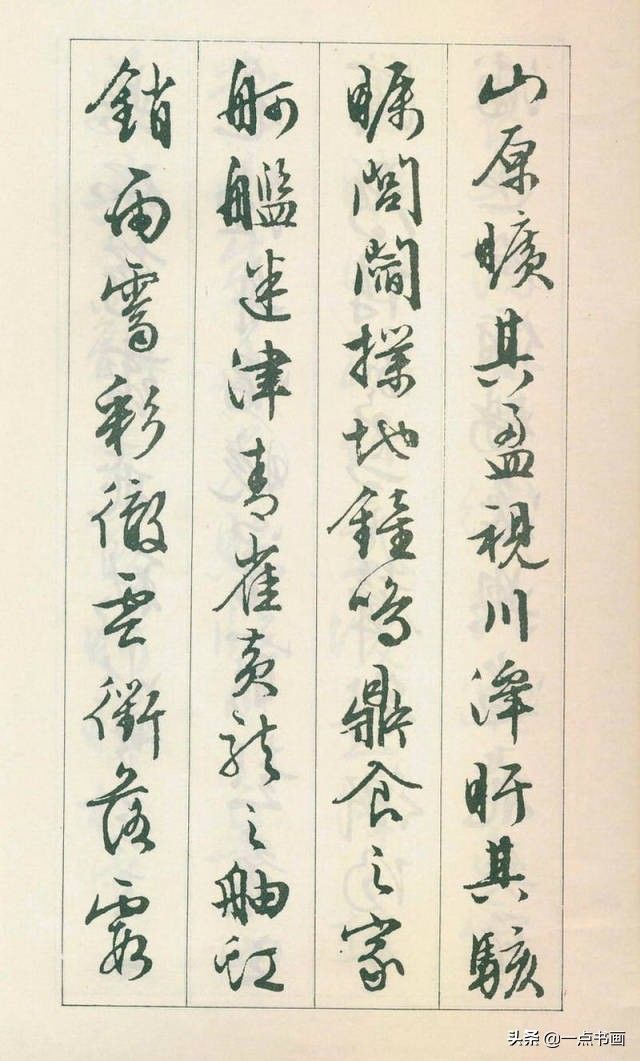 山原曠其盈視川澤盱其駭
矚閭閻撲地鐘鳴鼎食之家
舸艦迷津青雀黃龍之舳虹
銷雨霽彩徹雲衢落霞
头条 @一点书画